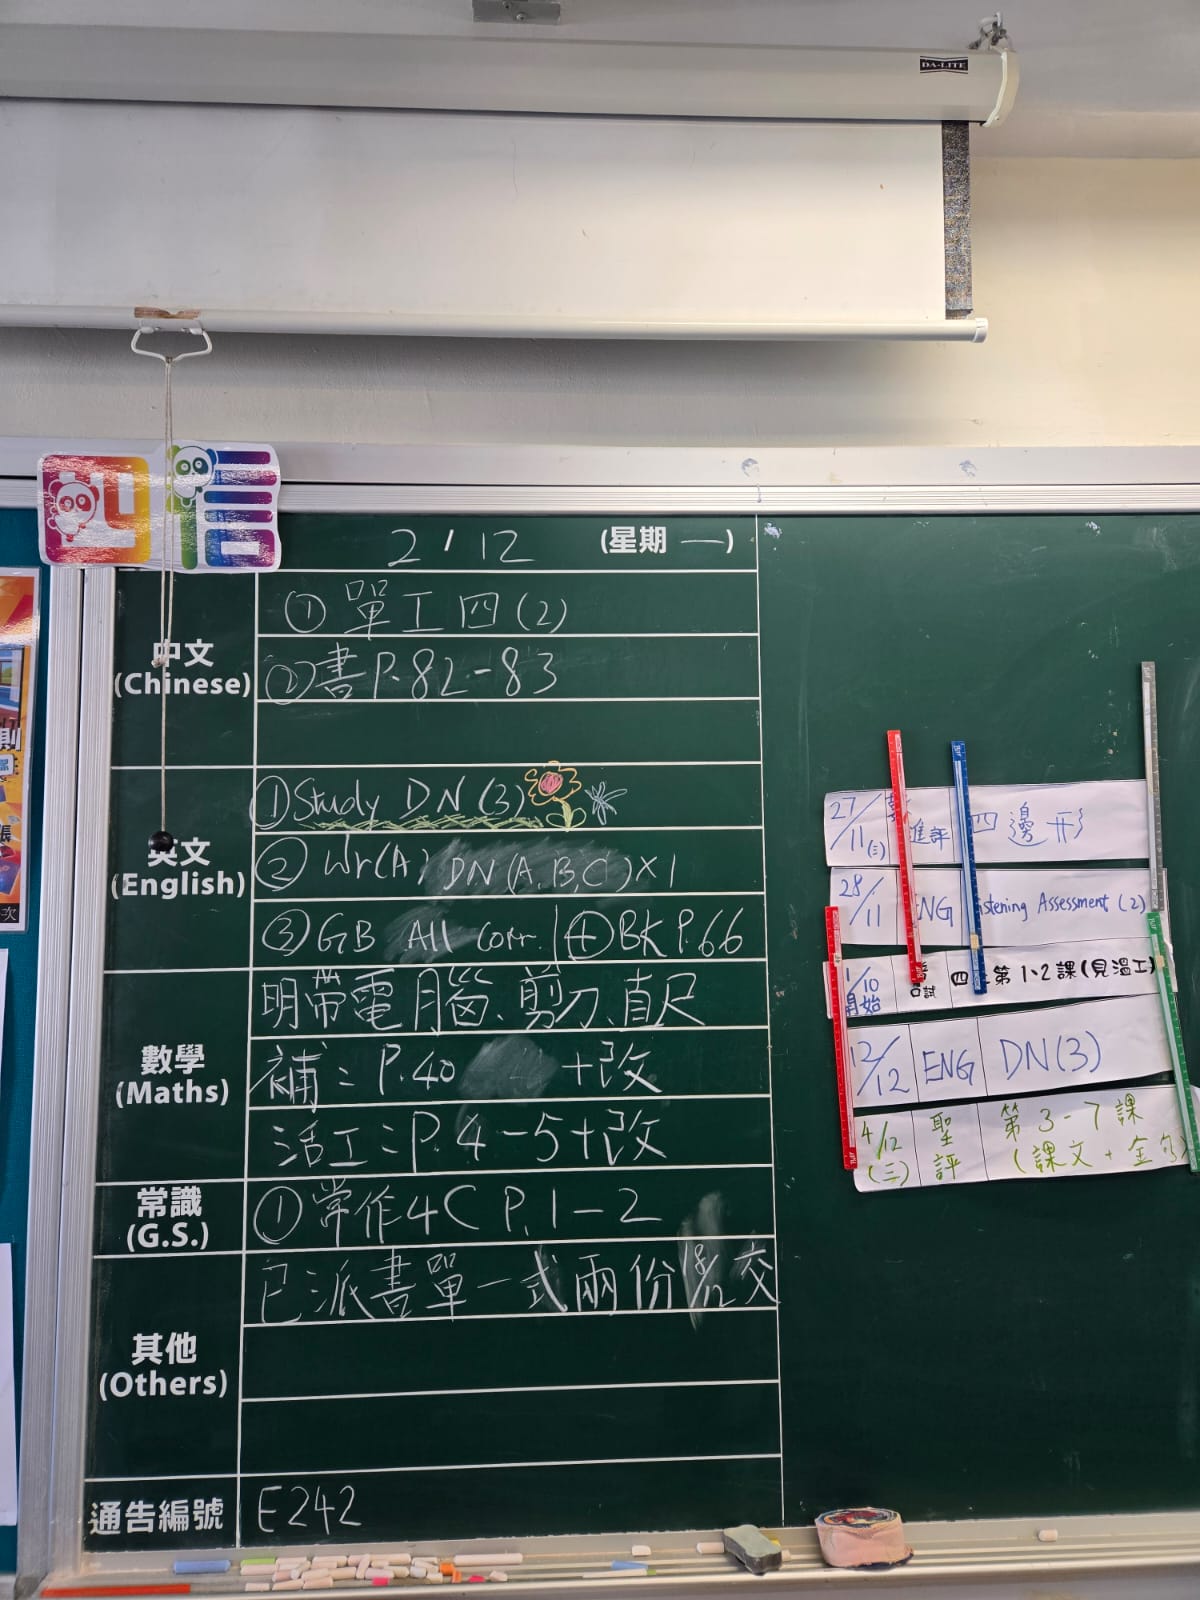 DA-LITE
四信
2/12 (星期一)
中文
(Chinese)
① 單工四(2)
② 書 P.82-83
英文
(English)
① Study DN (3)
② Wr(A) DN (A, B, C) x1
③ GB All corr. ④ BK P.66
數學
(Maths)
明帶電腦、剪刀、直尺
補二 P.40 +改
活工二 P.4-5+改
常識
(G.S.)
① 常作4C P.1-2
其他
(Others)
已派書單一式兩份 18/12交
通告編號
E242
27/11(三) 進評 四邊形
28/11 ENG Listening Assessment (2)
1/10 開始 口試 四 第1、2課(見溫工)
12/12 ENG DN(3)
4/12 (三) 聖評 第3-7課
(課文+金句